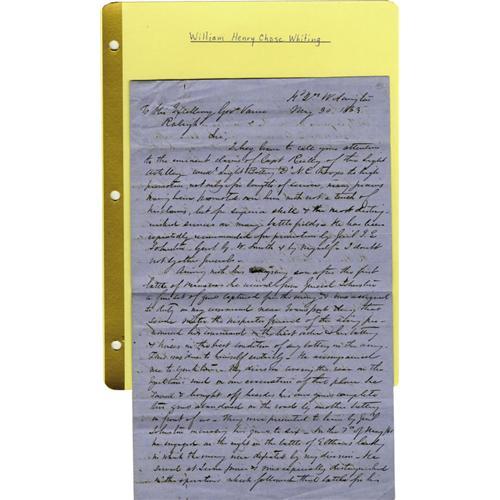 William Henry Chase Whiting
Hd Qrs Wilmington
To His Excellency Gov Vance May 30. 1863
Raleigh
Sir,
I beg leave to call your attention
to the eminent claims of Capt Reilly of the light
Artillery to high
promotion, not only for length of service, many
having been promoted over him with not a tenth
but for superior skill & the most disting
uished services on many battle fields. He has been
repeatedly recommended for promotion by Genl J. E.
Johnston. Genl G. W. Smith & by myself & I doubt
not by other Generals.
army soon after the first
battle of Manassas he received from General Johnston
a of guns captured from the enemy & was assigned
to duty in my command near
the inspector general of the
his command in the best order & his battery
& horses in the best condition of any battery in the army.
This was due to himself entirely. He accompanied
me to Yorktown. My division the rear in the
and on our evacuation of that place he
& brought off besides his own guns complete
guns abandoned on the road by another battery
in front of us & they were presented to him by Genl
Johnston increasing his guns to six. On the 7th of May
he engaged on the right in the battle of Elthams
in which the enemy were defeated by my division. He
served at Seven Pines & was especially distinguished
in the operations which followed that battle for his